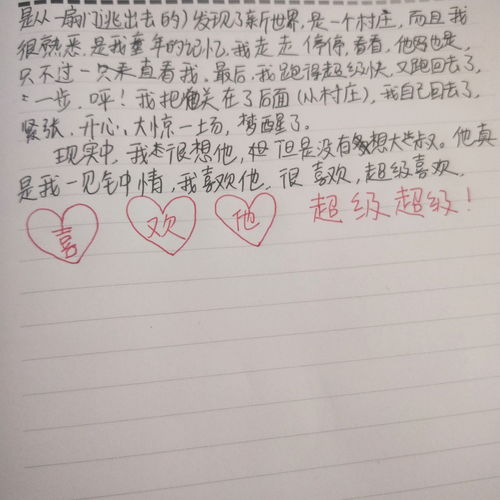 是从一扇门逃出去的)发现了新世界,是一个村庄,而且我
很熟悉,是我童年的记忆,我走走停停,看看,他也是,
只不过一只来直看我.最后,我跑得超级快,又跑回去了,
一步,呼!我把他关在了后面(从村庄),我自己回去了,
紧张、开心、大惊一场,梦醒了。
现实中,我很想他,但是没有多想大叔。他真
是我一见钟情,我喜欢他.很喜欢,超级喜欢.
喜 欢 他 超级超级!